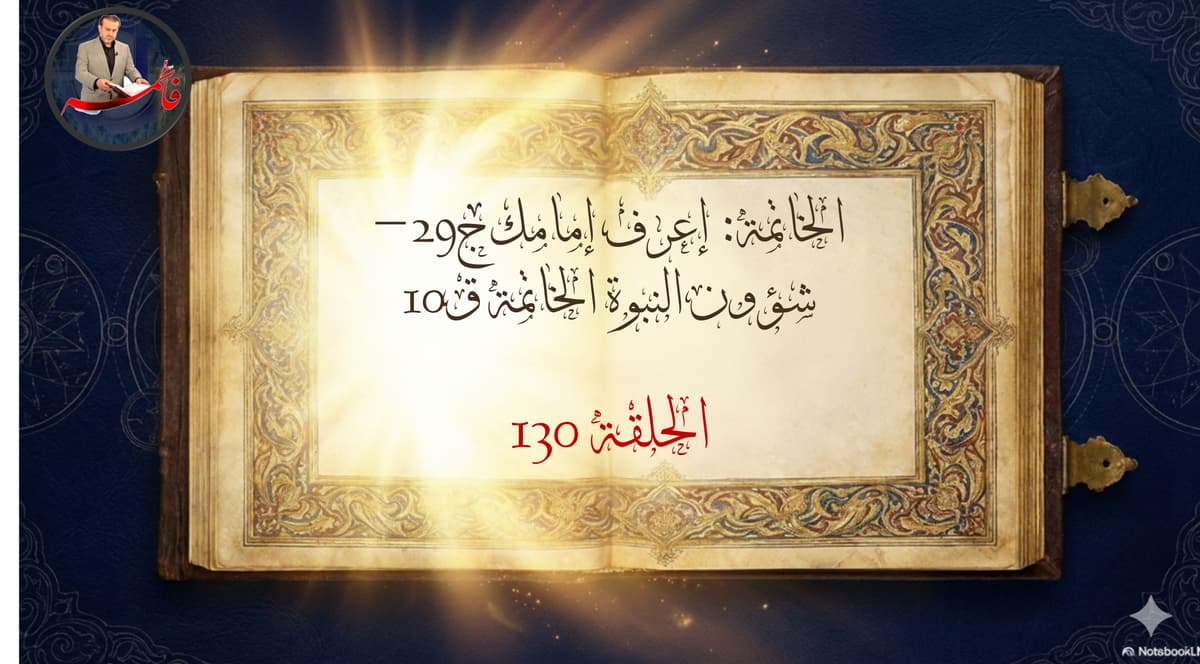 فاطمة
الخاتمة: إعرف إمامك ج29 –
شؤون النبوة الخاتمة ق10
الحلقة 130
NotsbookLM